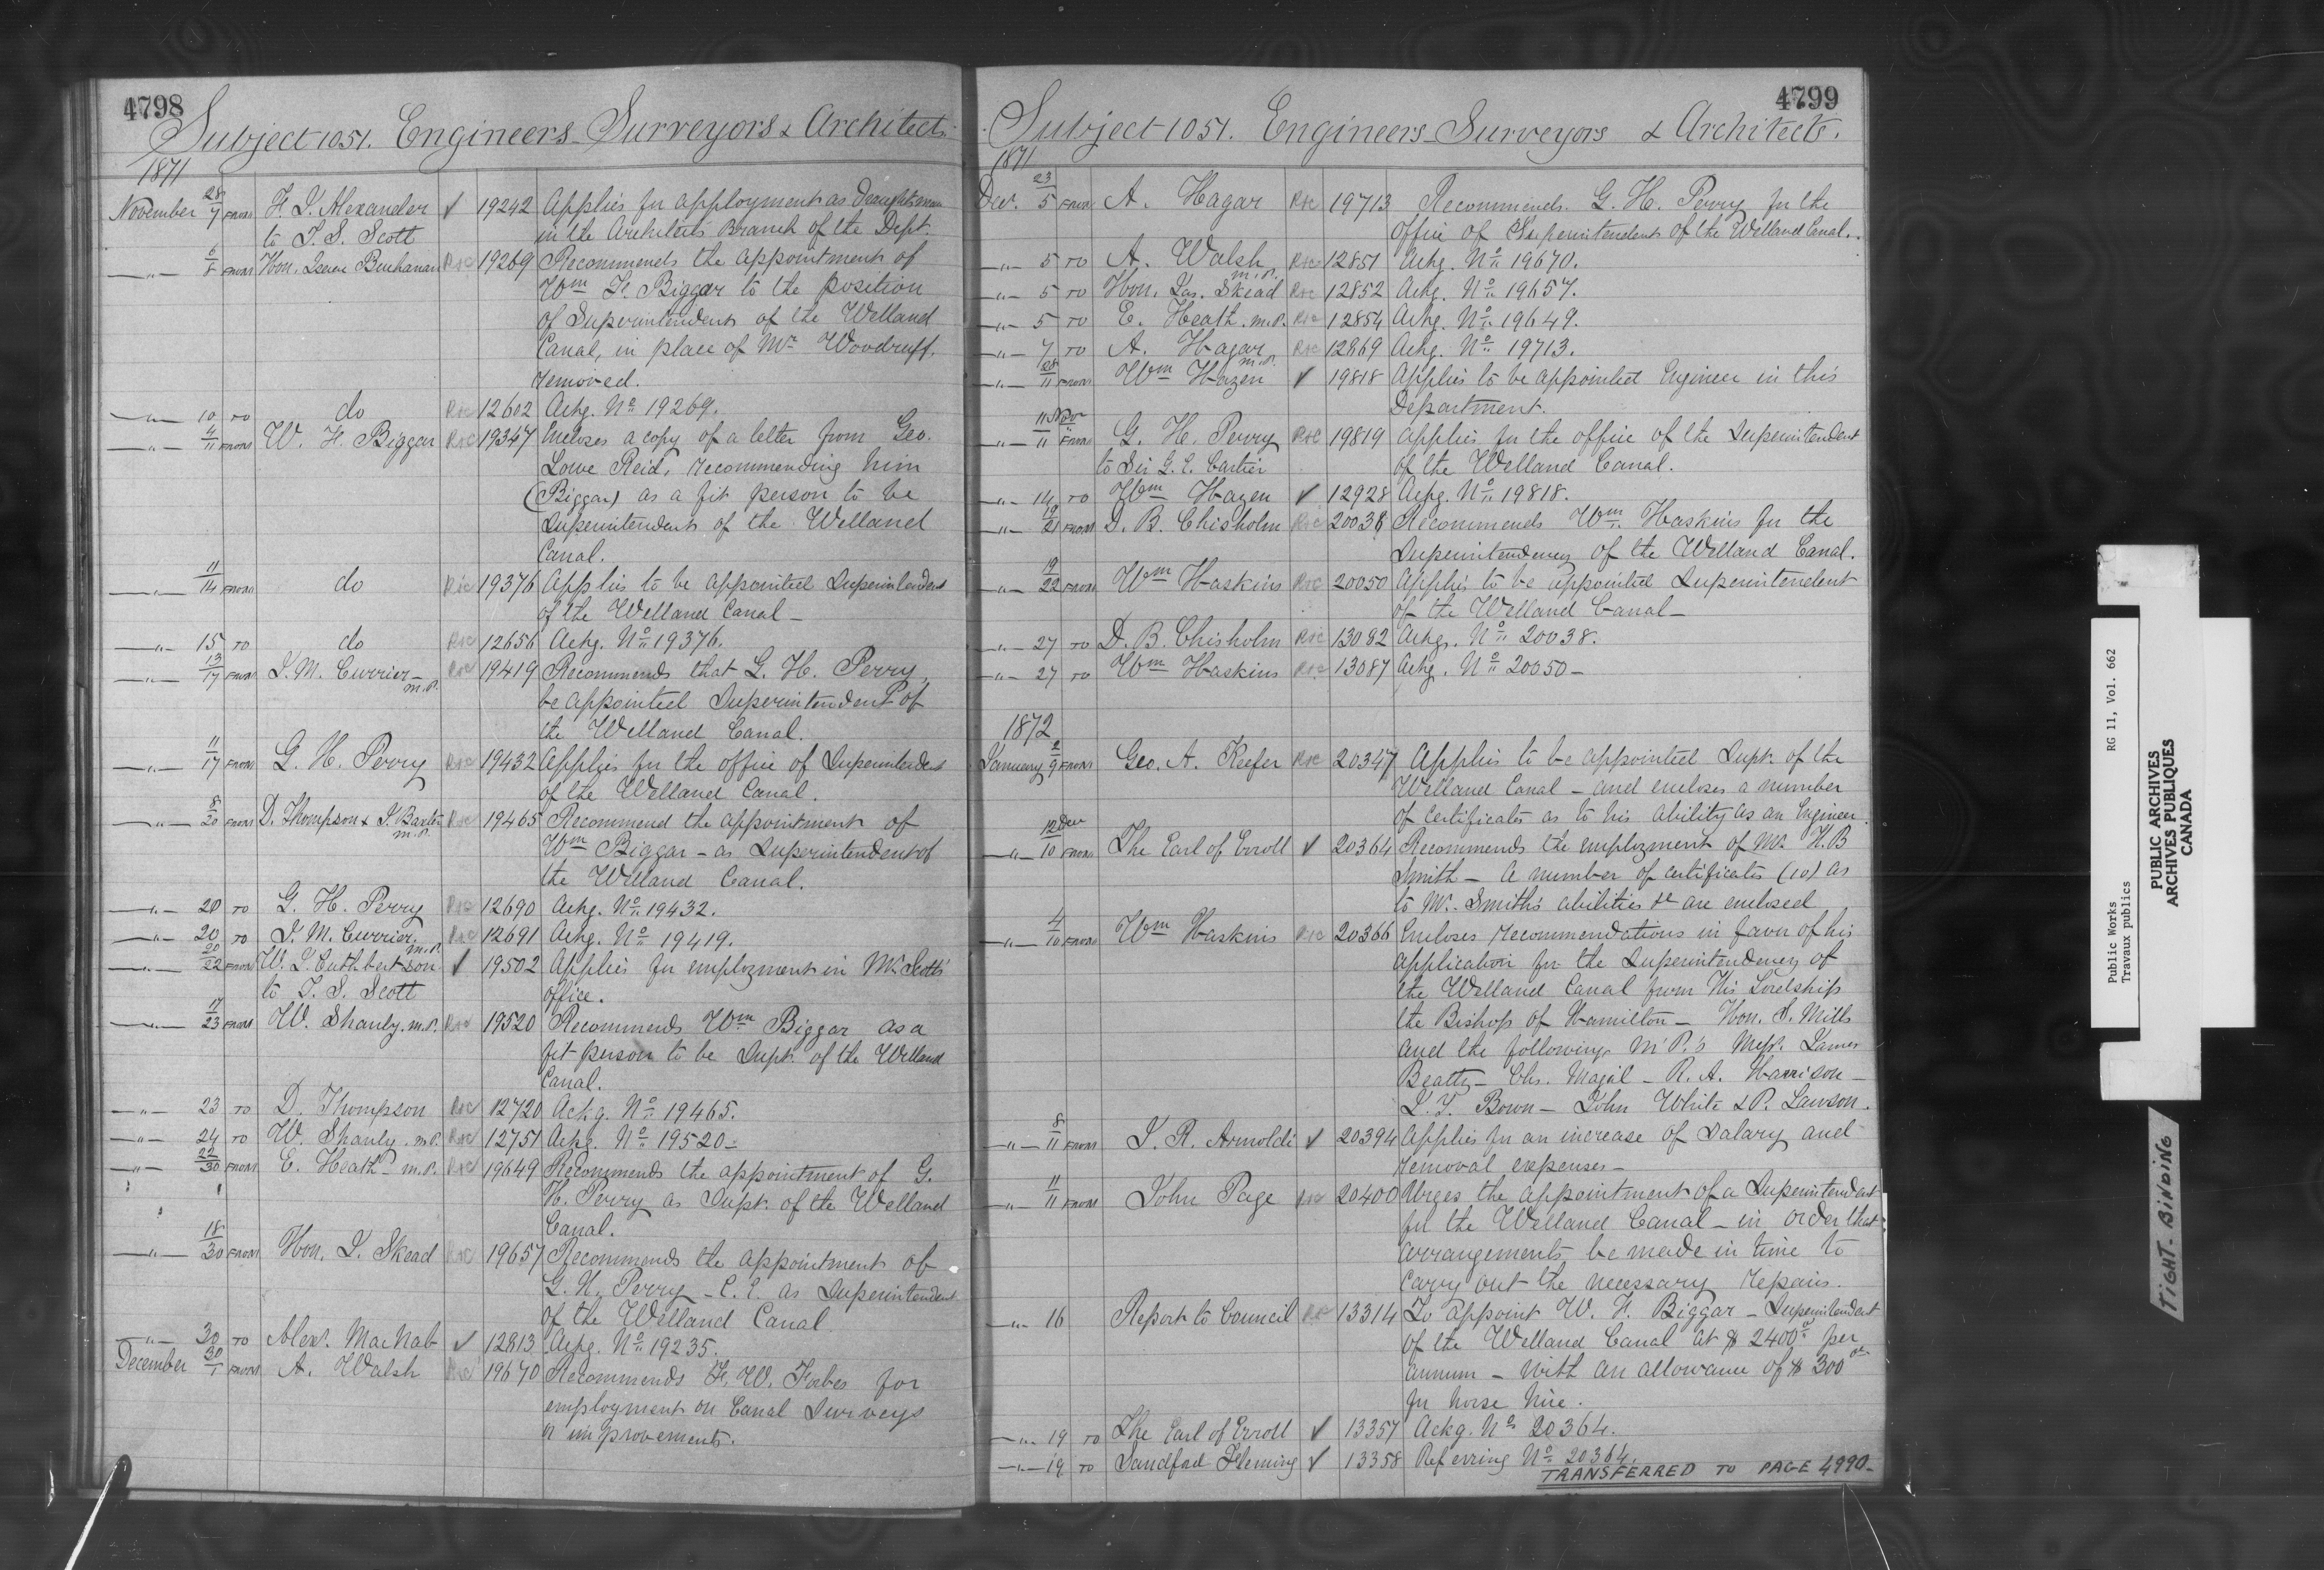 4798
Subject 1051. Engineers Surveyors & Architects.
1871
November 28/7 FROM F. J. Alexander ✓ 19242 Applies for apployment as Draughtsman
to T. S. Scott in the Architects Branch of the Dept.
—"— 6/8 FROM Hon. Isaac Buchanan R&C 19269 Recommends the appointment of
Wm F. Biggar to the position
of Superintendent of the Welland
Canal, in place of Mr Woodruff,
removed.
—"— 10 TO do R&C 12602 Ackg. No 19269.
—"— 4/11 FROM W. F. Biggar R&C 19347 Encloses a copy of a letter from Geo.
Lowe Reid, recommending him
(Biggar) as a fit person to be
Superintendent of the Welland
Canal.
—"— 11/14 FROM do R&C 19376 Applies to be appointed Superintendent
of the Welland Canal —
—"— 15 TO do R&C 12656 Ackg. No 19376.
—"— 13/17 FROM J. M. Currier — M.P. R&C 19419 Recommends that G. H. Perry
be appointed Superintendent of
the Welland Canal.
—"— 11/17 FROM G. H. Perry R&C 19432 Applies for the office of Superintendent
of the Welland Canal.
—"— 8/20 FROM D. Thompson & J. Baxter M.P. R&C 19465 Recommend the appointment of
Wm Biggar — as Superintendent of
the Welland Canal.
—"— 20 TO G. H. Perry R&C 12690 Ackg. No 19432.
—"— 20 TO J. M. Currier. M.P. R&C 12691 Ackg. No 19419.
—"— 20/22 FROM W. J. Cuthbertson ✓ 19502 Applies for employment in Mr Scott's
to T. S. Scott office.
—"— 17/23 FROM W. Shanly. M.P. R&C 19520 Recommends Wm Biggar as a
fit person to be Supt. of the Welland
Canal.
—"— 23 TO D. Thompson R&C 12720 Ackg. No 19465.
—"— 24 TO W. Shanly. M.P. R&C 12751 Ackg. No 19520 —
—"— 22/30 FROM E. Heath M.P. R&C 19649 Recommends the appointment of G.
H. Perry as Supt. of the Welland
Canal.
—"— 18/30 FROM Hon. J. Skead R&C 19657 Recommends the appointment of
G. H. Perry — C. E. as Superintendent
of the Welland Canal
—"— 30 TO Alex. MacNab ✓ 12813 Ackg. No 19235.
December 30/1 FROM A. Walsh R&C 19670 Recommends F. W. Forbes for
employment on Canal Surveys
or improvements.
4799
Subject 1051. Engineers Surveyors & Architects.
1871
Dec. 23/5 FROM A. Hagar R&C 19713 Recommends G. H. Perry for the
office of Superintendent of the Welland Canal.
—"— 5 TO A. Walsh M.P. R&C 12851 Ackg. No 19670.
—"— 5 TO Hon. Jas. Skead R&C 12852 Ackg. No 19657.
—"— 5 TO E. Heath. M.P. R&C 12854 Ackg. No 19649.
—"— 7 TO A. Hagar M.P. R&C 12869 Ackg. No 19713.
—"— 28/11 FROM Wm Hazen ✓ 19818 Applies to be appointed Engineer in this
Department.
—"— 11 Nov/11 FROM G. H. Perry R&C 19819 Applies for the office of the Superintendent
to Sir G. E. Cartier of the Welland Canal.
—"— 14 TO Wm Hazen ✓ 12928 Ackg. No 19818.
—"— 19/21 FROM D. B. Chisholm R&C 20038 Recommends Wm Haskins for the
Superintendency of the Welland Canal.
—"— 19/22 FROM Wm Haskins R&C 20050 Applies to be appointed Superintendent
of the Welland Canal —
—"— 27 TO D. B. Chisholm R&C 13082 Ackg. No 20038.
—"— 27 TO Wm Haskins R&C 13087 Ackg. No 20050 —
1872
January 2/9 FROM Geo. A. Keefer R&C 20347 Applies to be appointed Supt. of the
Welland Canal — and encloses a number
of certificates as to his ability as an Engineer.
—"— 12 Dec/10 FROM The Earl of Erroll ✓ 20364 Recommends the employment of Mr H. B
Smith — A number of certificates (10) as
to Mr. Smith's abilities &c are enclosed
—"— 4/10 FROM Wm Haskins R&C 20366 Encloses recommendations in favor of his
application for the Superintendency of
the Welland Canal from His Lordship
the Bishop of Hamilton — Hon. S. Mills
and the following M.P.'s Messrs. James
Beatty — Chs. Magil — R. A. Harrison —
J. Y. Bown — John White & P. Lawson.
—"— 8/11 FROM J. R. Arnoldi ✓ 20394 Applies for an increase of Salary and
removal expenses —
—"— 11/11 FROM John Page R&C 20400 Urges the appointment of a Superintendent
for the Welland Canal — in order that
arrangements be made in time to
carry out the necessary repairs.
—"— 16 Report to Council R&C 13314 To appoint W. F. Biggar — Superintendent
of the Welland Canal at $2400.00 per
annum — with an allowance of $300.00
for horse hire.
—"— 19 TO The Earl of Erroll ✓ 13357 Ackg. No 20364.
—"— 19 TO Sandford Fleming ✓ 13358 Referring No 20364.
TRANSFERRED TO PAGE 4990—
Public Works RG 11, Vol. 662
Travaux publics
PUBLIC ARCHIVES
ARCHIVES PUBLIQUES
CANADA
TIGHT-BINDING